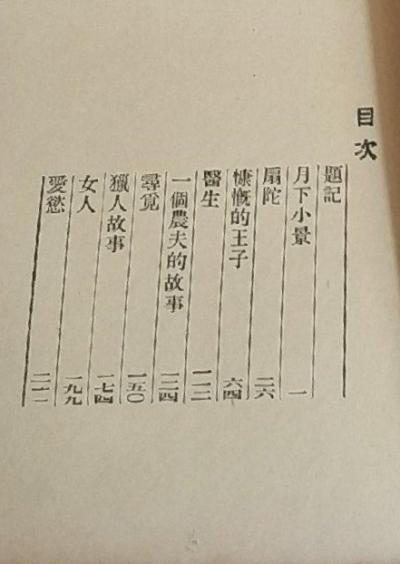 目次
題記
月下小景 一
扇陀 二六
慷慨的王子 六四
醫生 一一二
一個農夫的故事 一二四
尋覓 一五〇
獵人故事 一七四
女人 一九九
愛慾 二一一